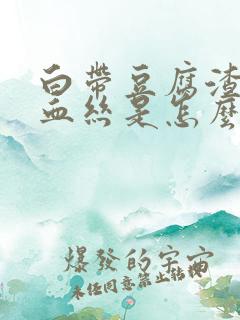 白帶豆腐渣
血絲是怎麼
爆發的宇宙
未经同意禁止转载